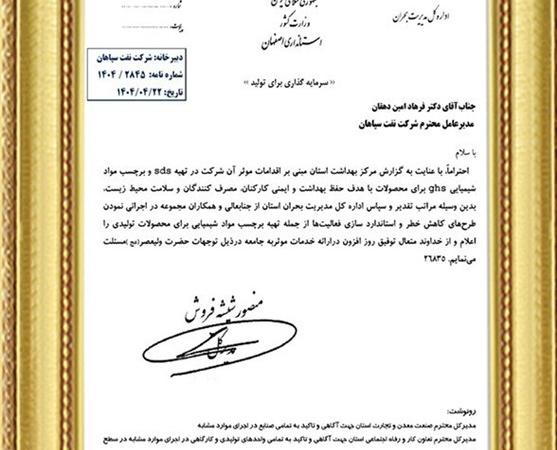 جمهوری اسلامی ایران
وزارت کشور
استانداری اصفهان
اداره کل مدیریت بحران
شماره
پیوست
دبیرخانه: شرکت نفت سپاهان
شماره نامه: ۲۸۴۵ / ۱۴۰۴
تاریخ: ۱۴۰۴/۰۴/۲۲
«سرمایه گذاری برای تولید»
جناب آقای دکتر فرهاد امین دهقان
مدیرعامل محترم شرکت نفت سپاهان
با سلام
احتراماً، با عنایت به گزارش مرکز بهداشت استان مبنی بر اقدامات موثر آن شرکت در تهیه sds و برچسب مواد
شیمیایی ghs برای محصولات با هدف حفظ بهداشت و ایمنی کارکنان، مصرف کنندگان و سلامت محیط زیست،
بدین وسیله مراتب تقدیر و سپاس اداره کل مدیریت بحران استان از جنابعالی و همکاران مجموعه در اجرائی نمودن
طرح‌های کاهش خطر و استاندارد سازی فعالیت‌ها از جمله تهیه برچسب مواد شیمیایی برای محصولات تولیدی را
اعلام و از خداوند متعال توفیق روز افزون درارائه خدمات موثربه جامعه درذیل توجهات حضرت ولیعصر(عج)مسئلت
می‌نمایم. ۲۶۸۳۵
منصور شیشه فروش
مدیر کل
رونوشت:
مدیرکل محترم صنعت معدن و تجارت استان جهت آگاهی و تاکید به تمامی صنایع در اجرای موارد مشابه
مدیرکل محترم تعاون کار و رفاه اجتماعی استان جهت آگاهی و تاکید به تمامی واحدهای تولیدی و کارگاهی در اجرای موارد مشابه در سطح